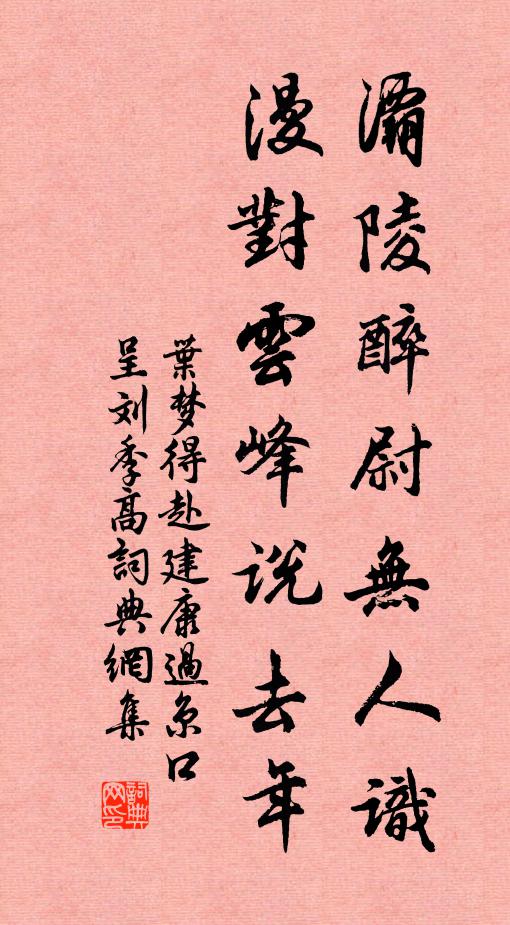 灞陵醉尉無人識
漫對雲峰説去年
葉梦得赴建康過京口
呈刘季高詞典網集
詞典网印